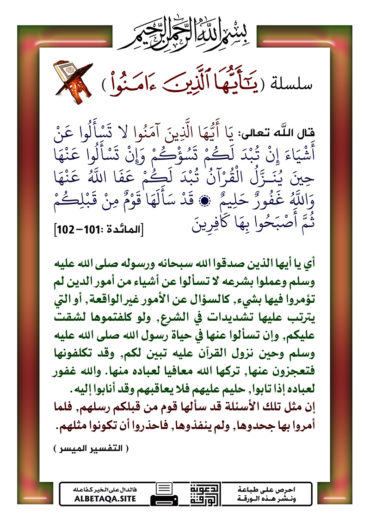 بسم الله الرحمن الرحيم
سلسلة ( يَٰٓأَيُّهَا ٱلَّذِينَ ءَامَنُواْ )
قال الله تعالى: يَا أَيُّهَا الَّذِينَ آمَنُوا لَا تَسْأَلُوا عَنْ
أَشْيَاءَ إِنْ تُبْدَ لَكُمْ تَسُؤْكُمْ وَإِنْ تَسْأَلُوا عَنْهَا
حِينَ يُنَزَّلُ الْقُرْآنُ تُبْدَ لَكُمْ عَفَا اللَّهُ عَنْهَا
وَاللَّهُ غَفُورٌ حَلِيمٌ ۞ قَدْ سَأَلَهَا قَوْمٌ مِنْ قَبْلِكُمْ
ثُمَّ أَصْبَحُوا بِهَا كَافِرِينَ [المائدة :101-102]
أي يا أيها الذين صدقوا الله سبحانه ورسوله صلى الله عليه
وسلم وعملوا بشرعه لا تسألوا عن أشياء من أمور الدين لم
تؤمروا فيها بشيء, كالسؤال عن الأمور غير الواقعة, أو التي
يترتب عليها تشديدات في الشرع, ولو كلفتموها لشقت
عليكم, وإن تسألوا عنها في حياة رسول الله صلى الله عليه
وسلم وحين نزول القرآن عليه تبين لكم, وقد تكلفونها
فتعجزون عنها, تركها الله معافيا لعباده منها. والله غفور
لعباده إذا تابوا, حليم عليهم فلا يعاقبهم وقد أنابوا إليه .
إن مثل تلك الأسئلة قد سألها قوم من قبلكم رسلهم, فلما
أمروا بها جحدوها, ولم ينفذوها, فاحذروا أن تكونوا مثلهم.
( التفسير الميسر )
احرص على طباعة
ونشر هذه الورقة
الورقة
الدعوية
فالدال على الخير كفاعله
ALBETAQA.SITE